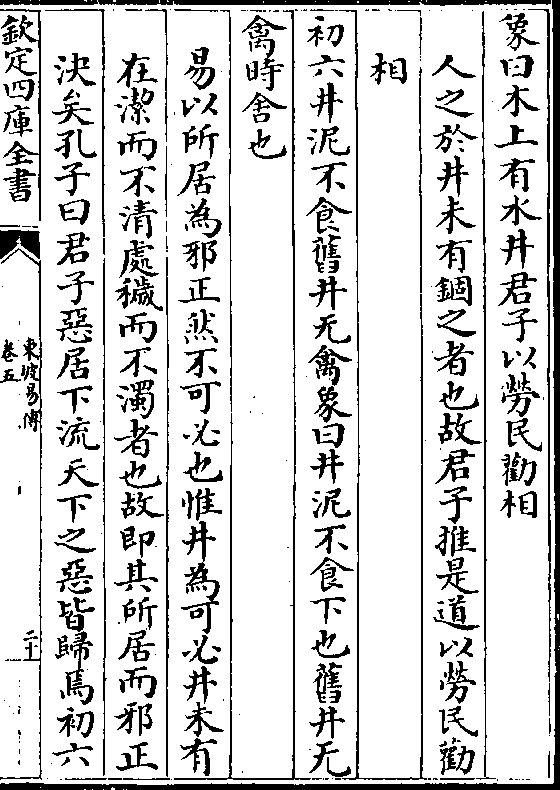 象曰木上有水井君子以勞民勸相
人之於井未有錮之者也故君子推是道以勞民勸
相
初六井泥不食舊井无禽象曰井泥不食下也舊井无
禽時舍也
易以所居為邪正然不可必也惟井為可必井未有
在潔而不清處穢而不濁者也故即其所居而邪正
決矣孔子曰君子惡居下流天下之惡皆歸焉初六
欽定四庫全書
東坡易傳
卷五
二十